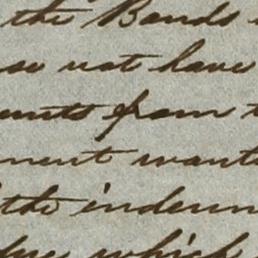 the Bonds
not have
from
ment want
the indem
which